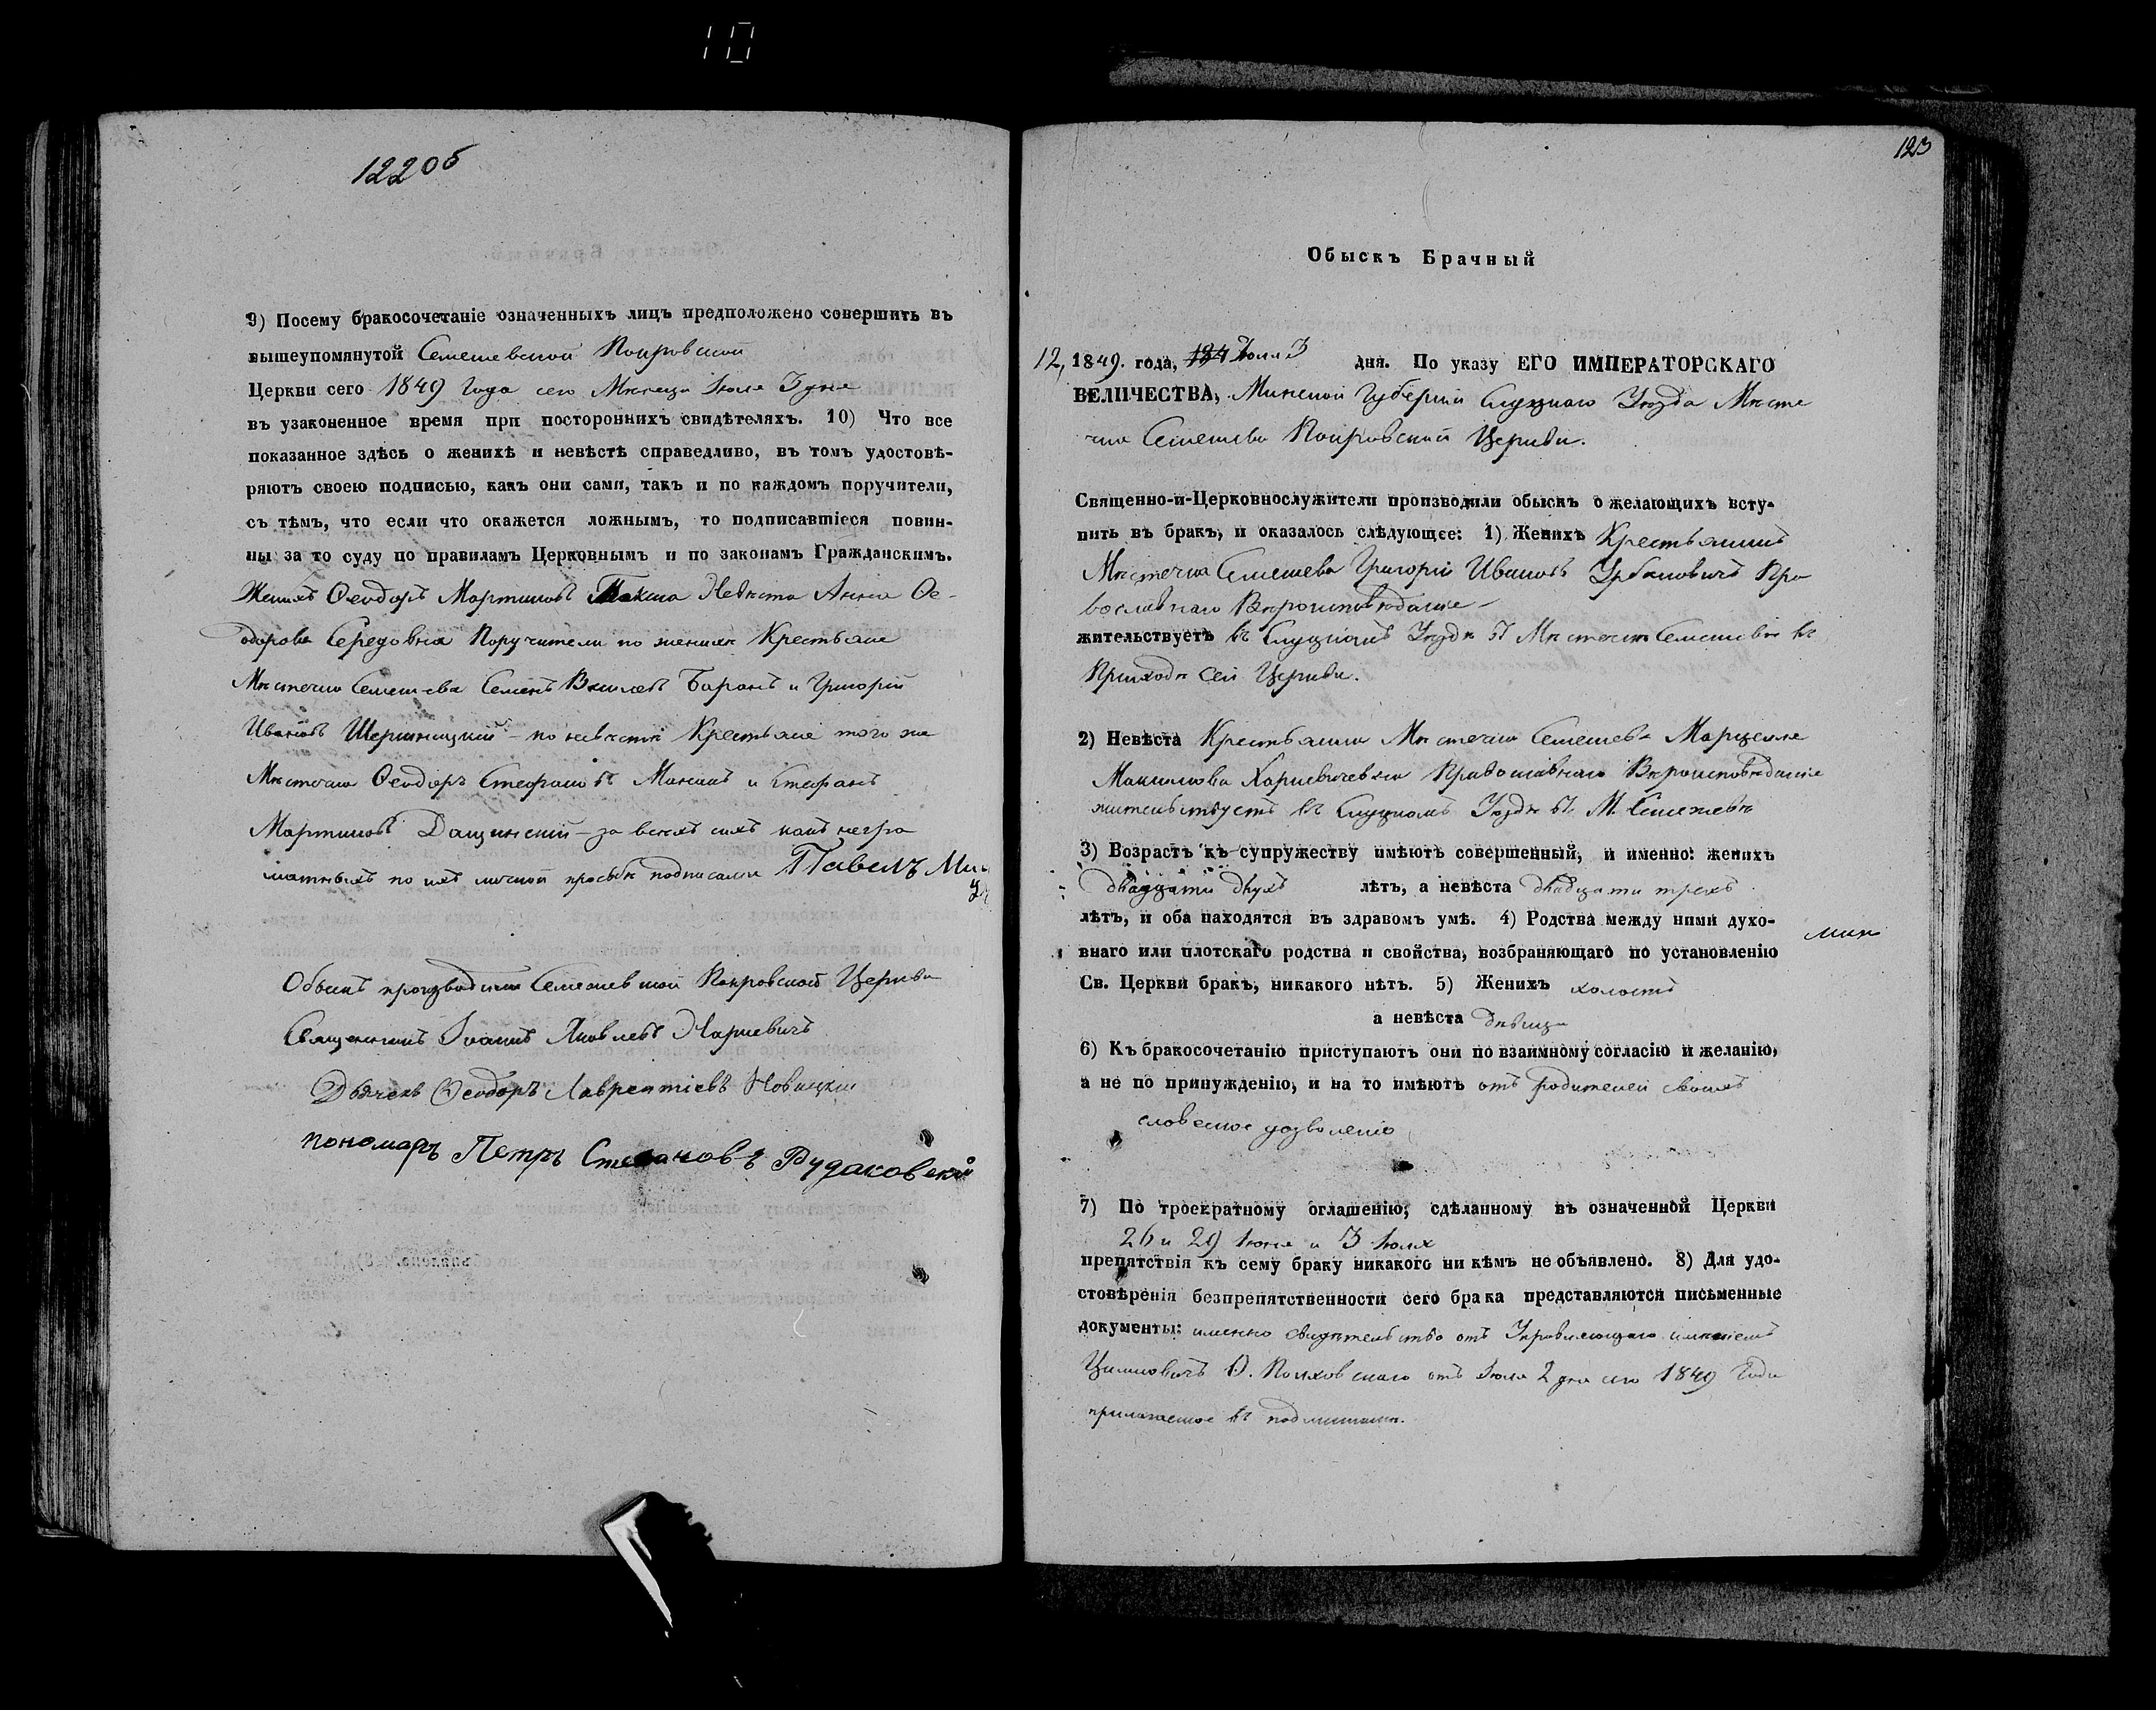 10
122 об
9) Посему бракосочетаніе означенныхъ лицъ предположено совершить въ
вышеупомянутой Семежевской Покровской
Церкви сего 1849 Года сего Мѣсяца Іюля 3 дня
въ узаконенное время при постороннихъ свидѣтеляхъ. 10) Что все
показанное здѣсь о женихѣ и невѣстѣ справедливо, въ томъ удостовѣ-
ряютъ своею подписью, какъ они сами, такъ и по каждомъ поручители,
съ тѣмъ, что если что окажется ложнымъ, то подписавшіеся повин-
ны за то суду по правиламъ Церковнымъ и по законамъ Гражданскимъ.
Женихъ Ѳеодоръ Мартиновъ Невѣста Анна Ѳе-
одорова Середовна Поручители по женихѣ Крестьяне
Мѣстечка Семежева Семенъ Василевъ Баранъ и Григорій
Ивановъ – по невѣстѣ Крестьяне того же
Мѣстечка Ѳеодоръ Стефановъ и Стефанъ
Мартиновъ Дащинскій – за всехъ сихъ какъ негра
мотныхъ по ихъ личной просьбѣ подписался Павелъ
Обыскъ производили Семежевской Покровской Церкви
Священникъ Іоаннъ Яковлевъ
Дьячекъ Ѳеодоръ Лаврентіевъ Новицкій
пономаръ Петръ Степановъ Рудаковскій
123
Обыскъ Брачный
12, 1849. года, Іюля 3 дня. По указу ЕГО ИМПЕРАТОРСКАГО
ВЕЛИЧЕСТВА, Минской Губерніи Слуцкаго Уѣзда Мѣсте
чка Семежева Покровской Церкви.
Священно-и-Церковнослужители производили обыскъ о желающихъ всту-
пить въ бракъ, и оказалось слѣдующее: 1) Женихъ Крестьянинъ
Мѣстечка Семежева Григорій Ивановъ Урбановичъ Пра
вославнаго Вѣроисповѣданія –
жительствуетъ въ Слуцкомъ Уѣздѣ въ Мѣстечкѣ Семежевѣ въ
Приходѣ сей Церкви.
2) Невѣста Крестьянка Мѣстечка Семежева Марцелля
Максимова Православнаго Вѣроисповѣданія
жительствуетъ въ Слуцкомъ Уѣздѣ въ М. Семежевѣ
3) Возрастъ къ супружеству имѣютъ совершенный, и именно: женихъ
двадцати двухъ лѣтъ, а невѣста двадцати трехъ
лѣтъ, и оба находятся въ здравомъ умѣ. 4) Родства между ними духо-
внаго или плотскаго родства и свойства, возбраняющаго по установленію
Св. Церкви бракъ, никакого нѣтъ. 5) Женихъ холостъ
а невѣста дѣвица
6) Къ бракосочетанію приступаютъ они по взаимному согласію и желанію,
а не по принужденію, и на то имѣютъ отъ родителей своихъ
словесное дозволеніе
7) По троекратному оглашенію, сдѣланному въ означенной Церкви
26 и 29 Іюня и 3 Іюля
препятствія къ сему браку никакого ни кѣмъ не объявлено. 8) Для удо-
стовѣренія безпрепятственности сего брака представляются письменные
документы: именно свидѣтельство отъ Управляющаго имѣніемъ
отъ Іюля 2 дня сего 1849 Года
прилагаемое въ подлинникѣ.